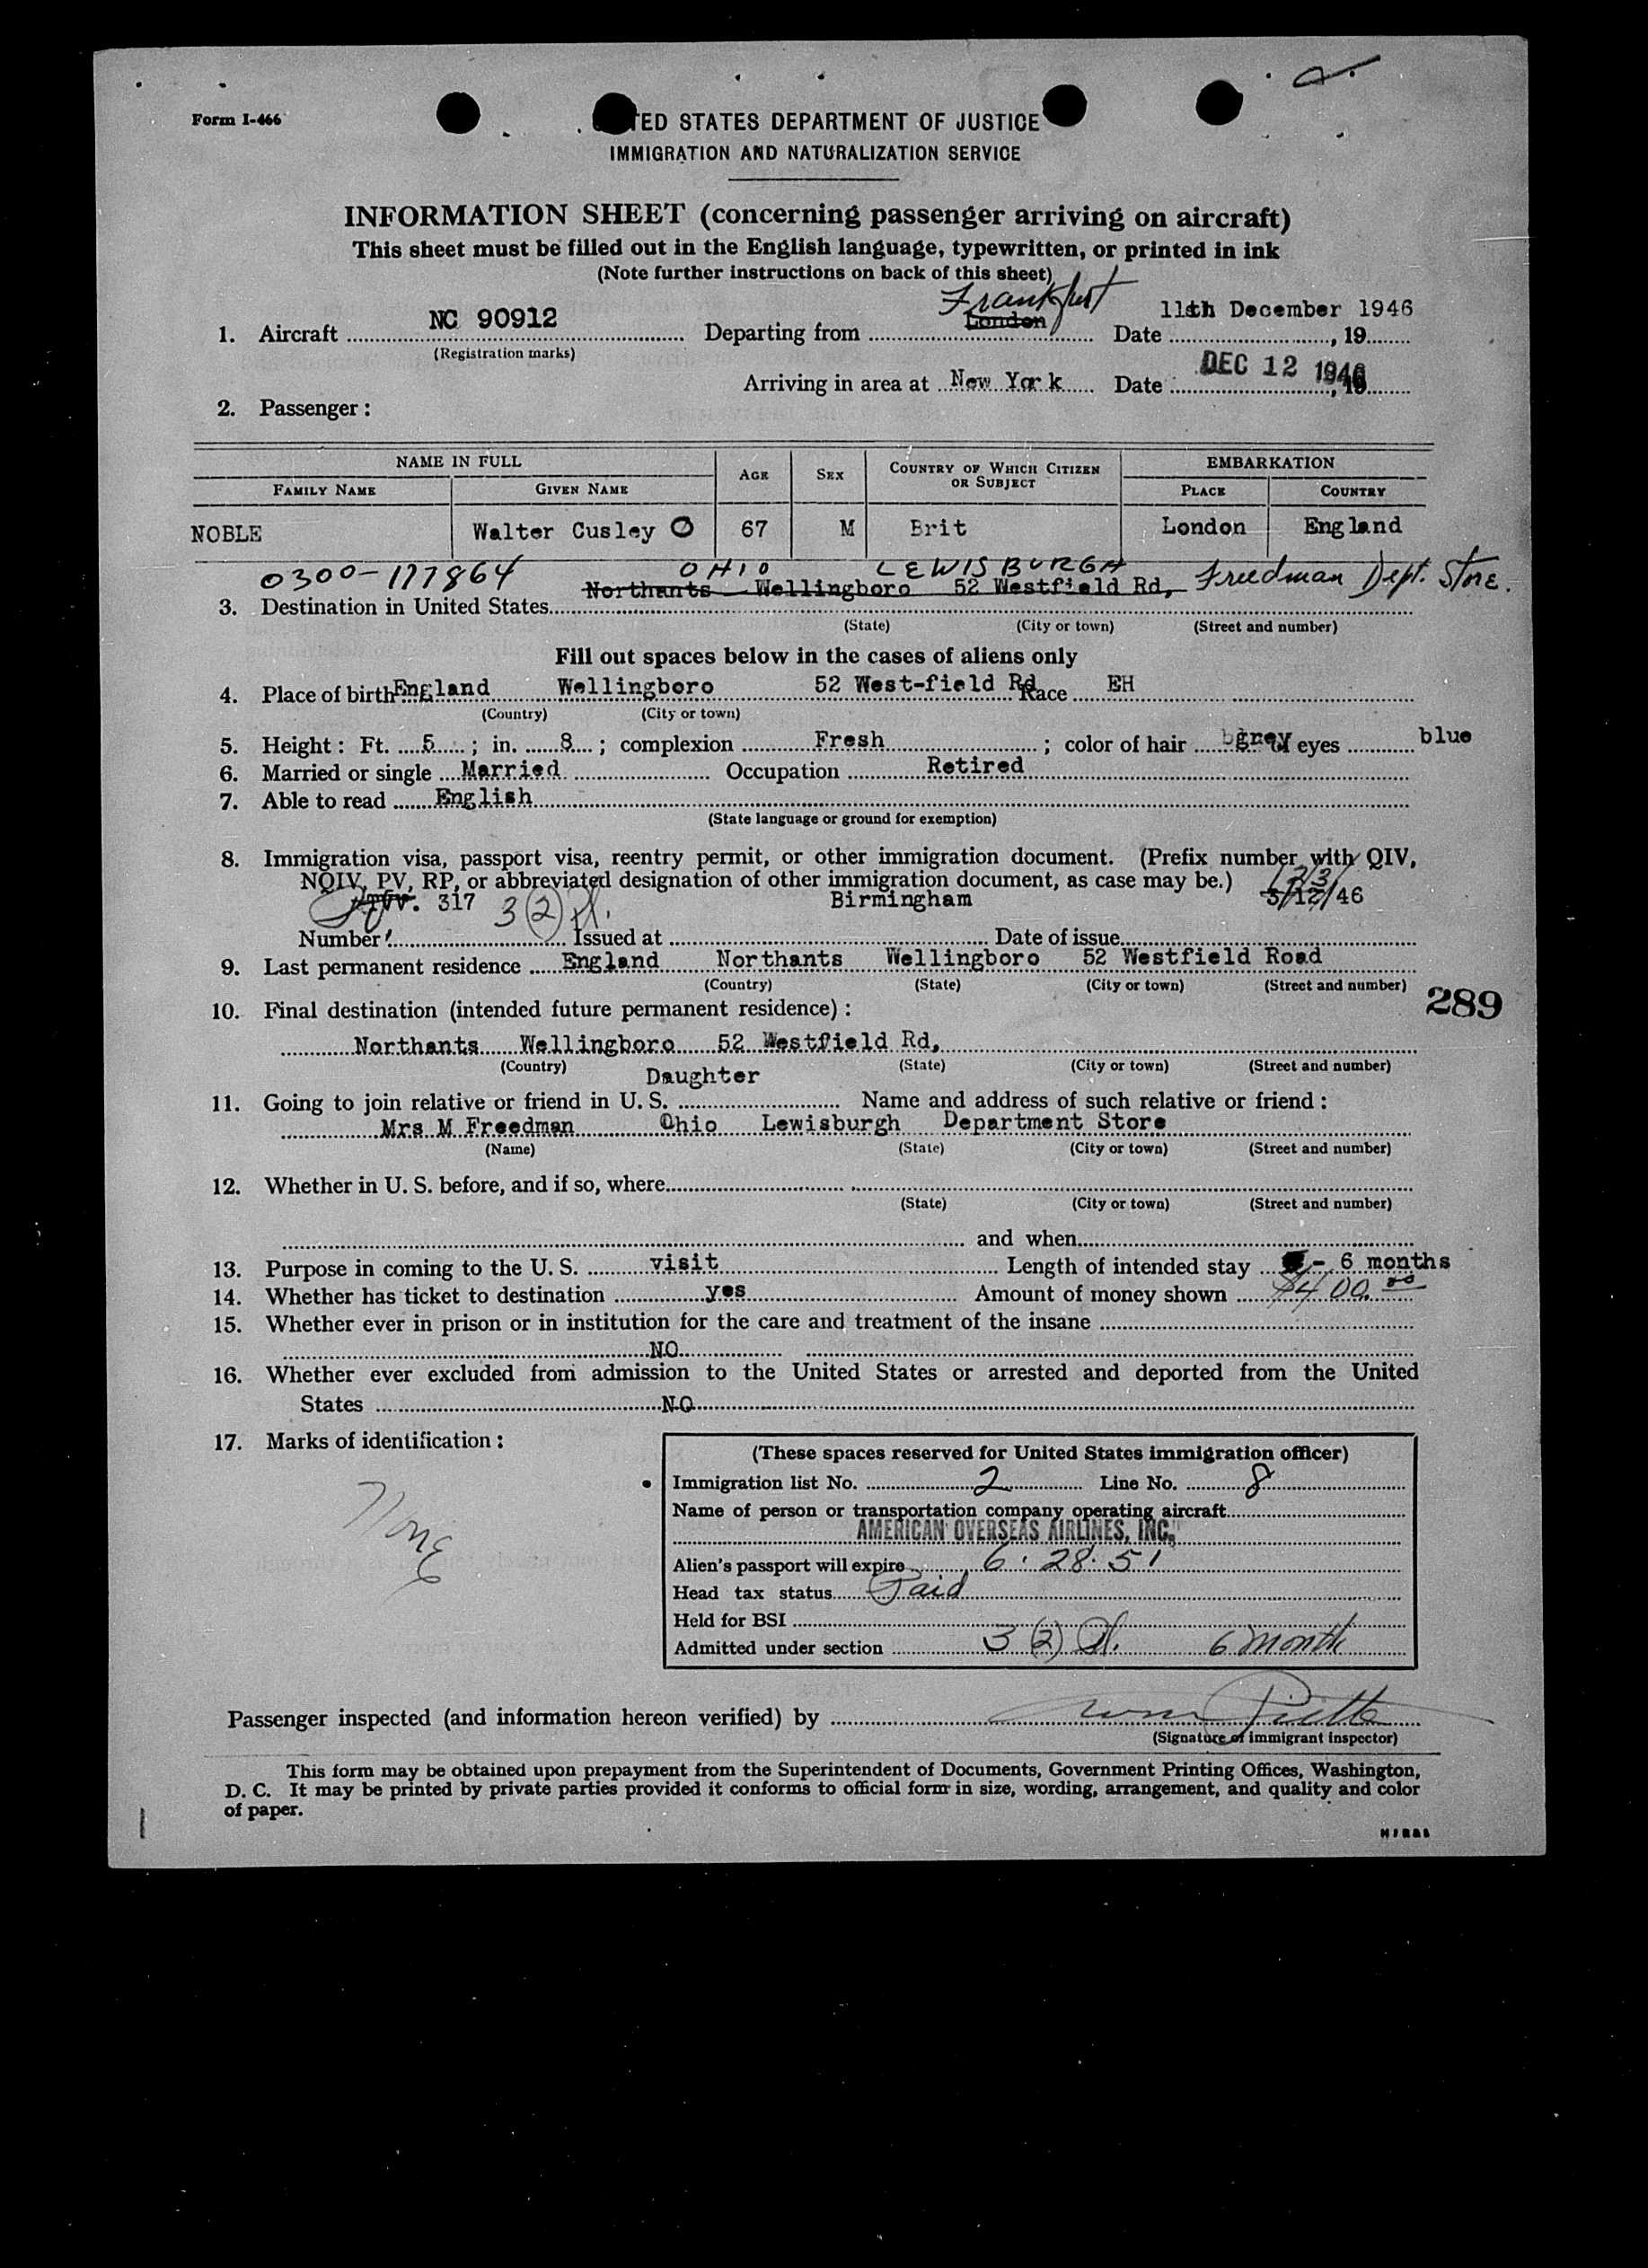 Form I-466
TED STATES DEPARTMENT OF JUSTICE
IMMIGRATION AND NATURALIZATION SERVICE
INFORMATION SHEET (concerning passenger arriving on aircraft)
This sheet must be filled out in the English language, typewritten, or printed in ink
(Note further instructions on back of this sheet)
1. Aircraft NC 90912 Departing from London Frankfurt Date 11th December 1946, 19
(Registration marks)
Arriving in area at New York Date DEC 12 1946, 19
2. Passenger:
NAME IN FULL AGE SEX COUNTRY OF WHICH CITIZEN OR SUBJECT EMBARKATION
FAMILY NAME GIVEN NAME PLACE COUNTRY
NOBLE Walter Cusley O 67 M Brit London England
0300-177864 OHIO LEWISBURGH Freedman Dept. Store.
3. Destination in United States Northants Wellingboro 52 Westfield Rd,
(State) (City or town) (Street and number)
Fill out spaces below in the cases of aliens only
4. Place of birth England Wellingboro 52 West-field Rd Race EH
(Country) (City or town)
5. Height: Ft. 5; in. 8; complexion Fresh; color of hair grey eyes blue
6. Married or single Married Occupation Retired
7. Able to read English
(State language or ground for exemption)
8. Immigration visa, passport visa, reentry permit, or other immigration document. (Prefix number with QIV,
NQIV, PV, RP, or abbreviated designation of other immigration document, as case may be.)
317 3(2) Birmingham /46
Number Issued at Date of issue
9. Last permanent residence England Northants Wellingboro 52 Westfield Road
(Country) (State) (City or town) (Street and number)
289
10. Final destination (intended future permanent residence):
Northants Wellingboro 52 Westfield Rd,
(Country) (State) (City or town) (Street and number)
Daughter
11. Going to join relative or friend in U. S. Name and address of such relative or friend:
Mrs M Freedman Ohio Lewisburgh Department Store
(Name) (State) (City or town) (Street and number)
12. Whether in U. S. before, and if so, where
(State) (City or town) (Street and number)
and when
13. Purpose in coming to the U. S. visit Length of intended stay - 6 months
14. Whether has ticket to destination yes Amount of money shown $400.00
15. Whether ever in prison or in institution for the care and treatment of the insane
NO
16. Whether ever excluded from admission to the United States or arrested and deported from the United
States NO
17. Marks of identification:
None
(These spaces reserved for United States immigration officer)
Immigration list No. 2 Line No. 8
Name of person or transportation company operating aircraft
AMERICAN OVERSEAS AIRLINES, INC.
Alien's passport will expire 6.28.51
Head tax status Paid
Held for BSI
Admitted under section 3(2) 6 month
Passenger inspected (and information hereon verified) by
(Signature of immigrant inspector)
This form may be obtained upon prepayment from the Superintendent of Documents, Government Printing Offices, Washington,
D. C. It may be printed by private parties provided it conforms to official form in size, wording, arrangement, and quality and color
of paper.